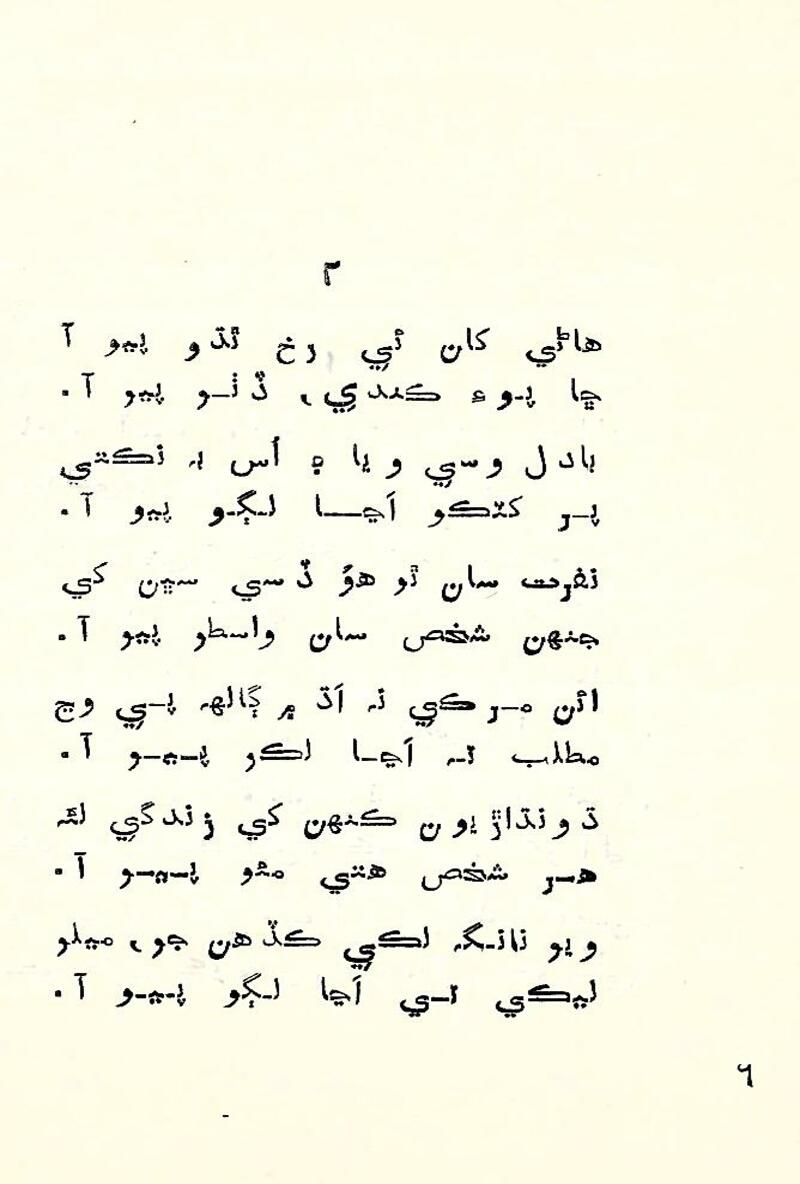 ٢
هاڻي کان ئي رخ ٿڌو پيو آ
ڇا پوءِ ڪندي، ڏٺو پيو آ.
بادل وسي ويا ۽ اُس بہ نڪتي
پر کٽڪو اَڃا لڳو پيو آ.
نفرت سان ٿو هوُ ڏسي سڀن کي
جنهن شخص سان واسطو پيو آ.
ائن مرڪي نہ اَڌ ۾ ڳالهہ پي وڃ
مطلب تہ اَڃا لڪو پيو آ.
ڌونڌاڙيون ڪنهن کي زندگي لئہ
هر شخص هتي مئو پيو آ.
ويو نانگہ لڪي ڪڏهن جو، ميلو
ليڪي تي اَڃا لڳو پيو آ.
٦